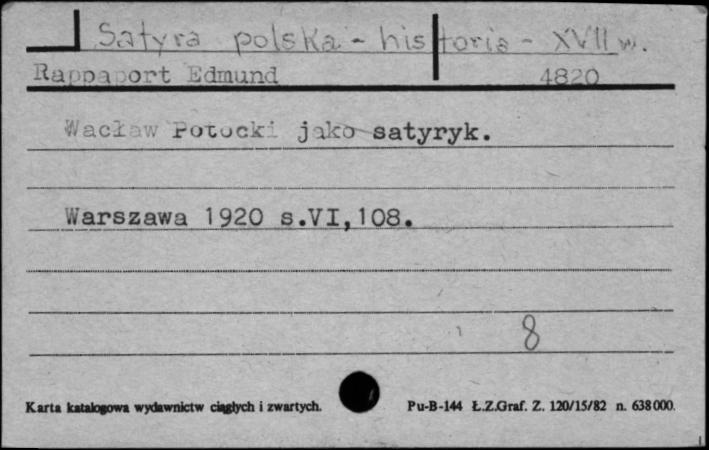 Satyra polska - historia - XVII w.
Rappaport Edmund 4820
Wacław Potocki jako satyryk.
Warszawa 1920 s.VI,108.
8
Karta katalogowa wydawnictw ciągłych i zwartych. Pu-B-144 Ł.Z.Graf. Z. 120/15/82 n. 638000.